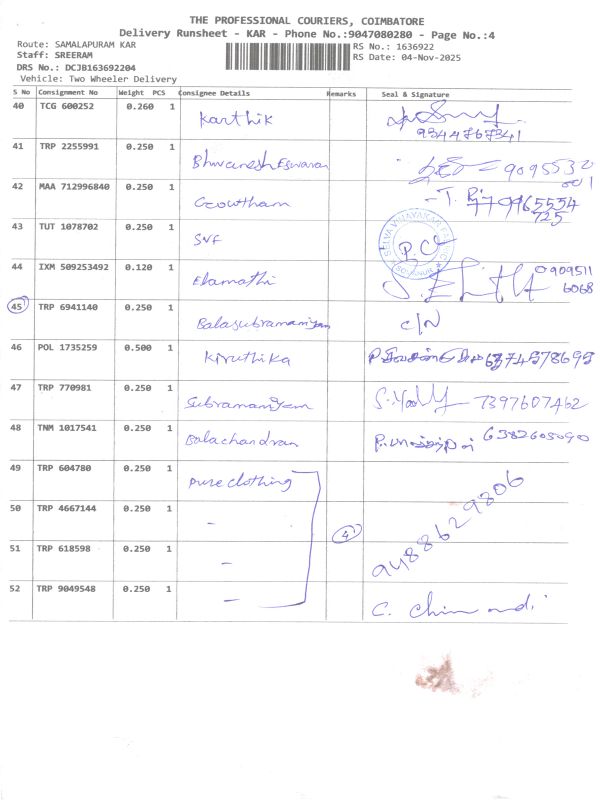 THE PROFESSIONAL COURIERS, COIMBATORE
Delivery Runsheet - KAR - Phone No.:9047080280 - Page No.:4
Route: SAMALAPURAM KAR
RS No.: 1636922
Staff: SREERAM
RS Date: 04-Nov-2025
DRS No.: DCJB163692204
Vehicle: Two Wheeler Delivery
S No Consignment No Weight PCS Consignee Details Remarks Seal & Signature
40 TCG 600252 0.260 1 Karthik
9344767341
41 TRP 2255991 0.250 1 Bhuvanesh Eswaran 9095532
001
42 MAA 712996840 0.250 1 Gowtham
43 TUT 1078702 0.250 1 SVF P.C
44 IXM 509253492 0.120 1 Elamathi 0909511
6068
45 TRP 6941140 0.250 1 Balasubramaniyan C/N
46 POL 1735259 0.500 1 Kiruthika
47 TRP 770981 0.250 1 Subramaniyam 7397607462
48 TNM 1017541 0.250 1 Balachandran 6382605090
49 TRP 604780 0.250 1 Pure clothing
50 TRP 4667144 0.250 1 - 4
9488629806
51 TRP 618598 0.250 1 -
52 TRP 9049548 0.250 1 -